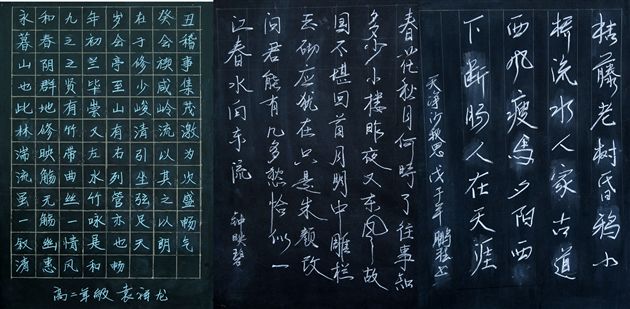 永和九年岁在癸丑
暮春之初会于会稽
山阴之兰亭修禊事
也群贤毕至少咸集
此地有崇山峻岭茂
林修竹又有清流激
湍映带左右引以为
流觞曲水列坐其次
虽无丝竹管弦之盛
一觞一咏亦足以畅
叙幽情是也天朗气
清惠风和畅
高二年级 袁祥龙
春花秋月何时了往事知
多少小楼昨夜又东风故
国不堪回首月明中雕栏
玉砌应犹在只是朱颜改
问君能有几多愁恰似一
江春水向东流 钟映碧
枯藤老树昏鸦小
桥流水人家古道
西风瘦马夕阳西
下断肠人在天涯
天净沙秋思 戊子年 鹏